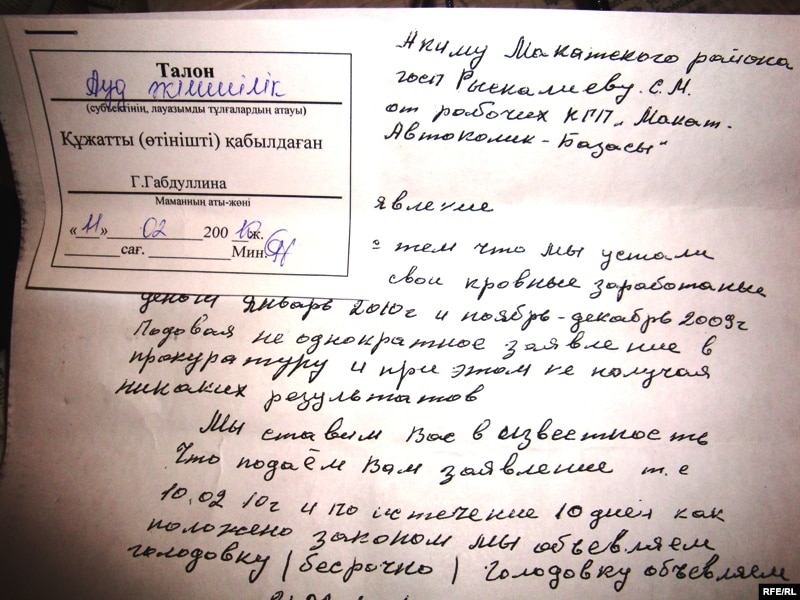 Талон
Ауд әкімшілік
(субъектінің, лауазымды тұлғалардың атауы)
Құжатты (өтінішті) қабылдаған
Г.Габдуллина
Маманның аты-жөні
« 11 » 02 200 10 ж.
сағ. Мин.
Акиму Макатского района
госп Рыскалиеву. С.М.
от рабочих КГП „ Макат-
Автоколик - Базасы"
явление
с тем что мы устали
свои кровные заработаные
деньги январь 2010г и ноябрь-декабрь 2009г
Подовая не однократное заявление в
прокуратуру и при этом не получая
никаких результатов
Мы ставим Вас в известность
Что подаём Вам заявление т.е
10.02 10г и по истечение 10 дней как
положено законом мы объевляем
голодовку / бесрочно / голодовку объевляем
RFE/RL